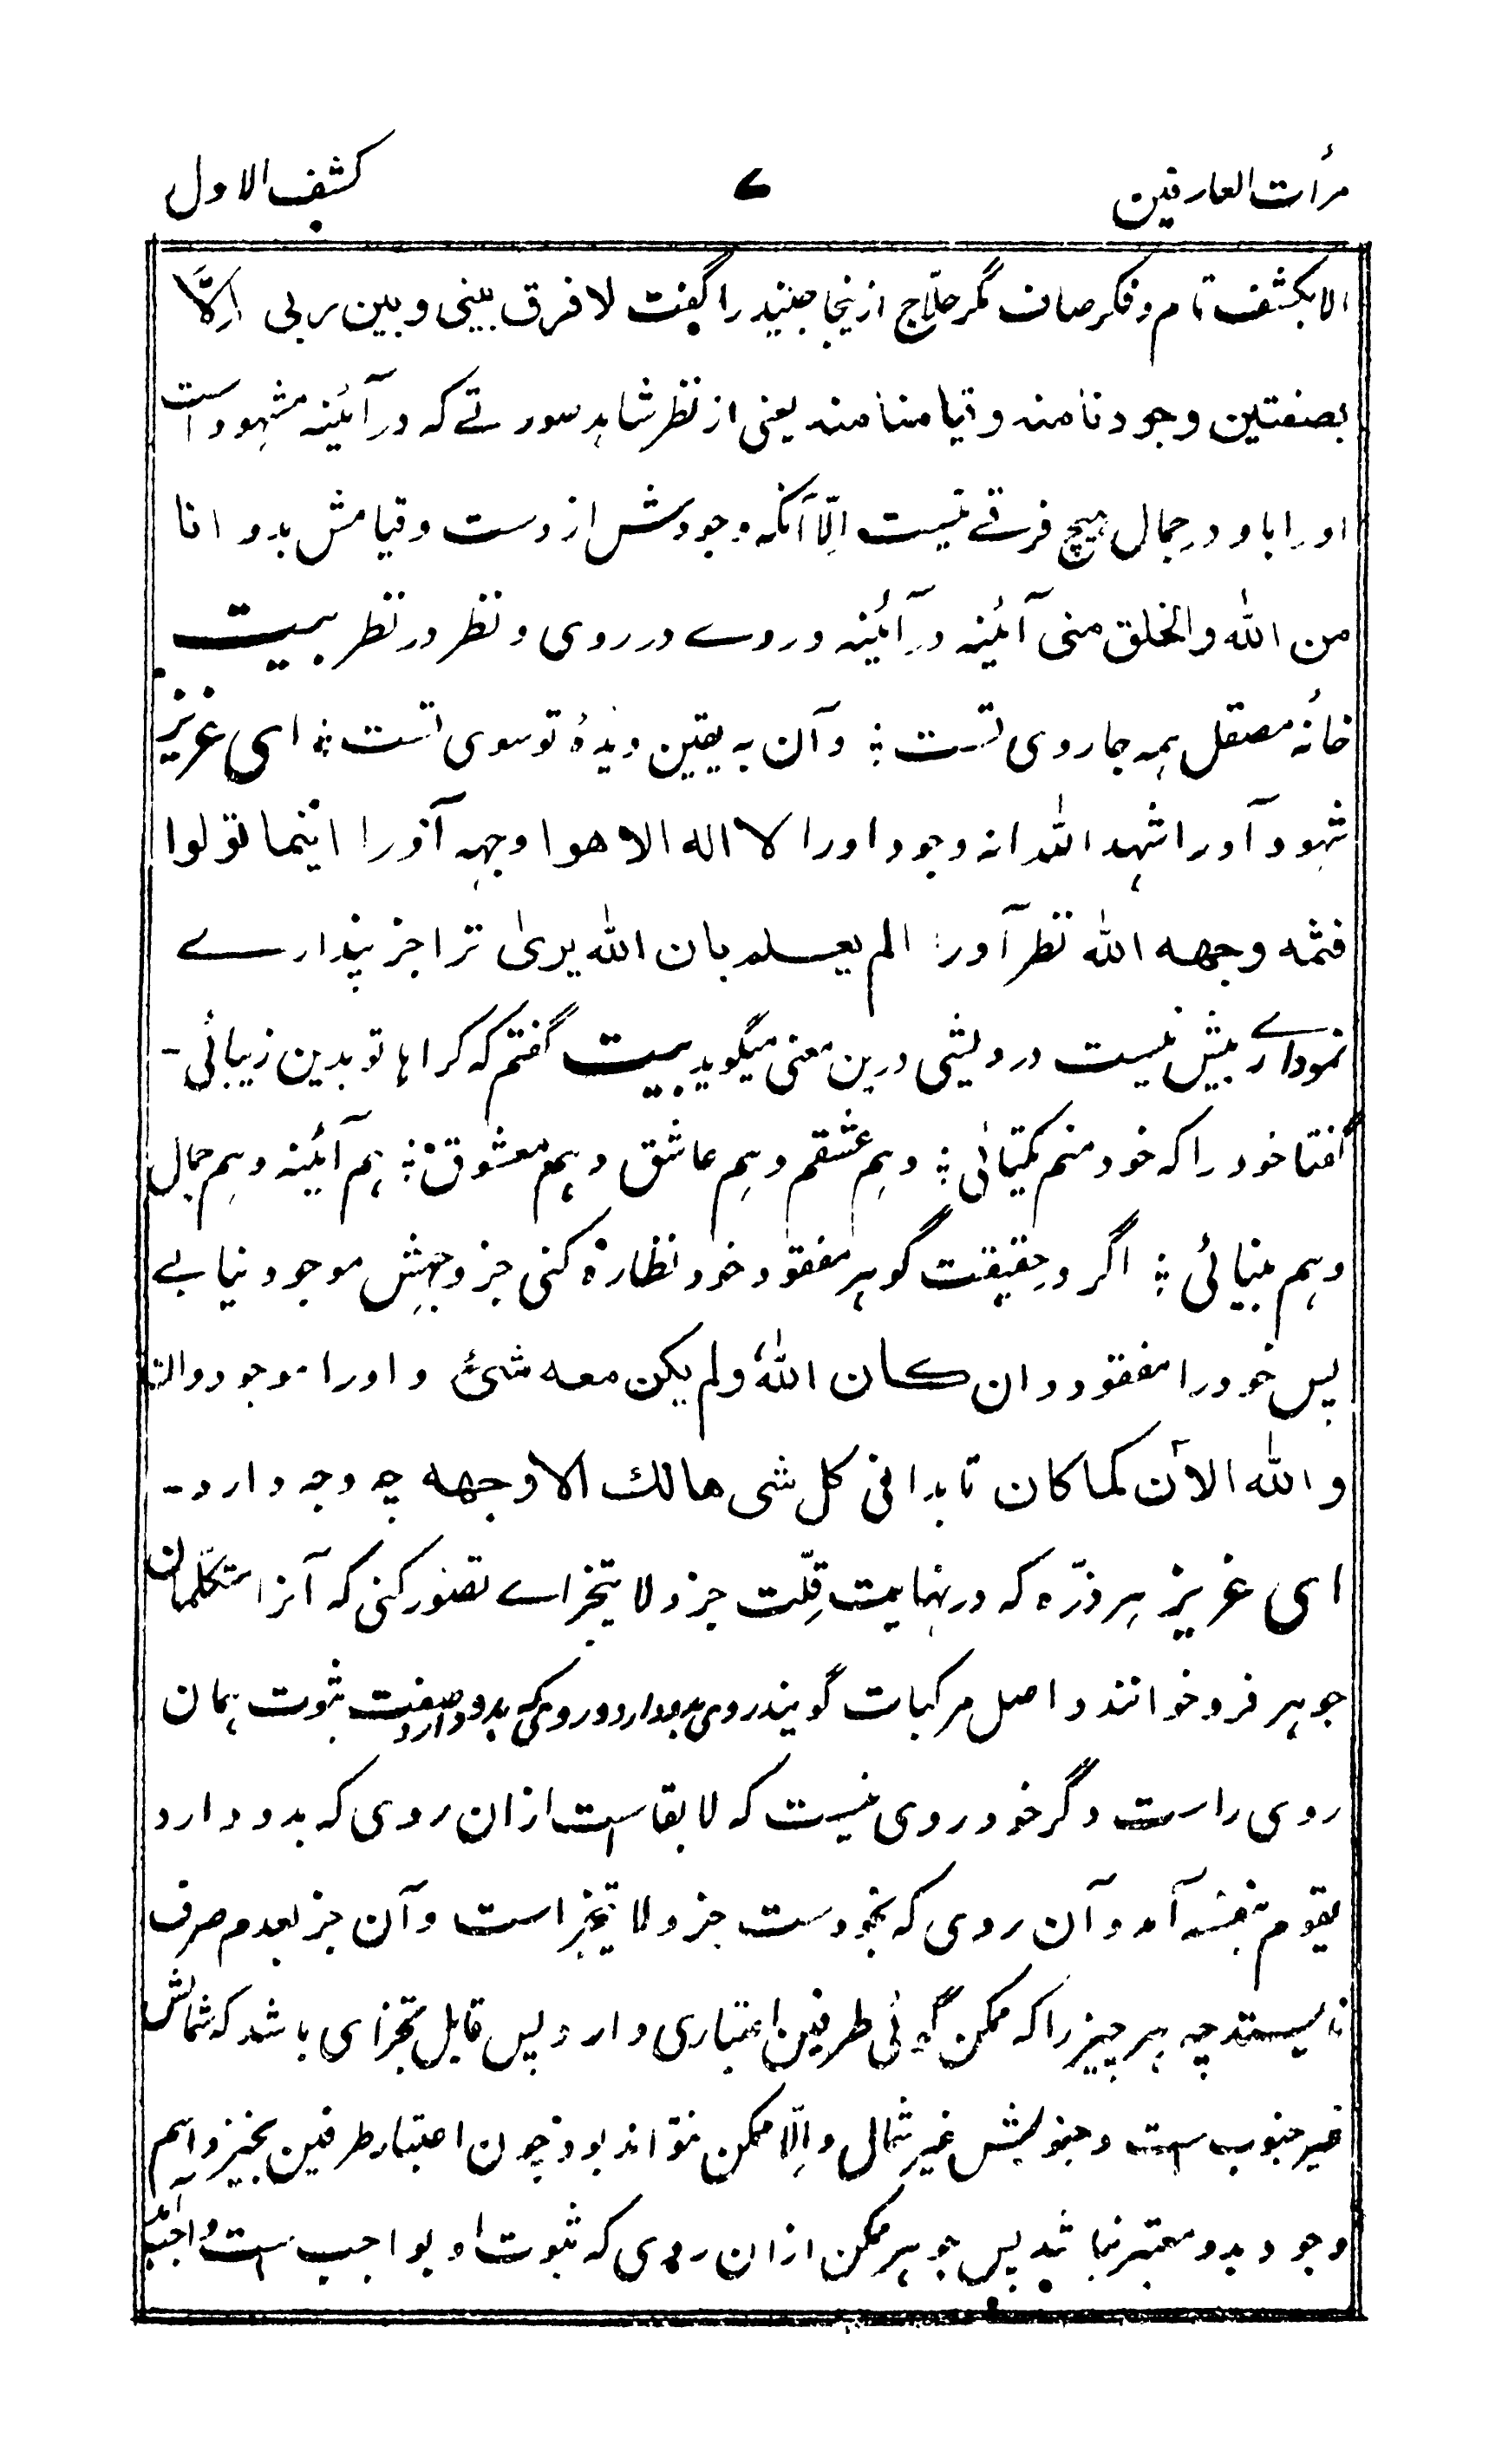 مرأت العارفین ۷ کشف الاول
الا بکشف تام و فکر صاف مگر حلّاج ازینجا جنید را گفت لا فرق بینی و بین ربی اِلّا
بصفتین وجودنا منه و قیامنا منه یعنی از نظر شاهد صورتے که در آئینه مشهود است
او را با و در جمال هیچ فرقے نیست اِلّا آنکه وجودش ازوست و قیامش بدو انا
من الله والخلق منی آئینه در آئینه و روے در روی و نظر در نظر بیت
خانهٔ مصقل همه جا روی تست ؛ و آن به یقین دیدهٔ تو سوی تست ؛ ای عزیز
شهود آور اشهد الله انه وجود اورا لا اله الا هو ا وجهه آور ا اینما تولوا
فثمه وجهه الله نظر آور ا الم یعلم بان الله یری ترا جز پندارے
نمودارے بیش نیست درویشی درین معنی میگوید بیت گفتم که کراها تو بدین زیبائی -
گفتا خود را که خود منم یکتائی ؛ و هم عشقم و هم عاشق و هم معشوق ؛ هم آئینه و هم جمال
و هم بینائی ؛ اگر در حقیقت گوهر مفقود خود نظاره کنی جز وجهش موجود نیابے
پس خود را مفقود دان کان الله ولم یکن معه شئ و او را موجود دان
و الله الآن کما کان تا بدانی کل شی هالک الا وجهه چه وجه دارد -
ای عزیز هر ذرّه که در نهایت قلّت جزو لا یتجزاے تصور کنی که آنرا متکلمان
جوهر فرد خوانند و اصل مرکبات گویند روی بخود دارد و روی که بدو دارد صفت ثبوت همان
روی راست دگر خود روی نیست که لا بقاست ازان روی که بدو دارد
یقوم بنفسه آمد و آن روی که بخودست جزو لا یتجزاست و آن جز بعدم صرف
نایستد چه هر چیز را که ممکن گوئی طرفین اعتباری دارد پس قابل تجزای باشد که شمالش
غیر جنوب ست و جنوبش غیر شمال و اِلّا ممکن نتواند بود چون اعتبار طرفین بخیزد اسم
وجود بدو معتبر نباشد پس جوهر ممکن ازان روی که ثبوت او بواجب ست واجب آمد